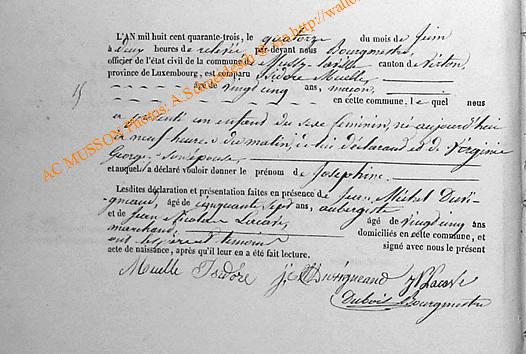 L'AN mil huit cent quarante-trois, le quatorze du mois de juin
à deux heures de relevée par-devant nous Bourgmestre,
officier de l'état civil de la commune de Mussy-la-ville canton de Virton,
province de Luxembourg, est comparu Isidore Muelle,
15
âgé de vingt cinq ans, maçon,
en cette commune, le quel nous
a présenté un enfant du sexe féminin, né aujourd'hui
à neuf heures du matin, de lui déclarant et de Virginie
George, son épouse,
et auquel a déclaré vouloir donner le prénom de Josephine.
Lesdites déclaration et présentation faites en présence de Jean Michel Duri-
gneaud, âgé de cinquante sept ans, aubergiste
et de Jean Nicolas Lacave, âgé de vingt cinq ans
marchand, domiciliés en cette commune, et
ont les père et témoins signé avec nous le présent
acte de naissance, après qu'il leur en a été fait lecture.
Muelle Isidore
Dubois Bourgmestre
AC MUSSON Photos: A.Schneidesch